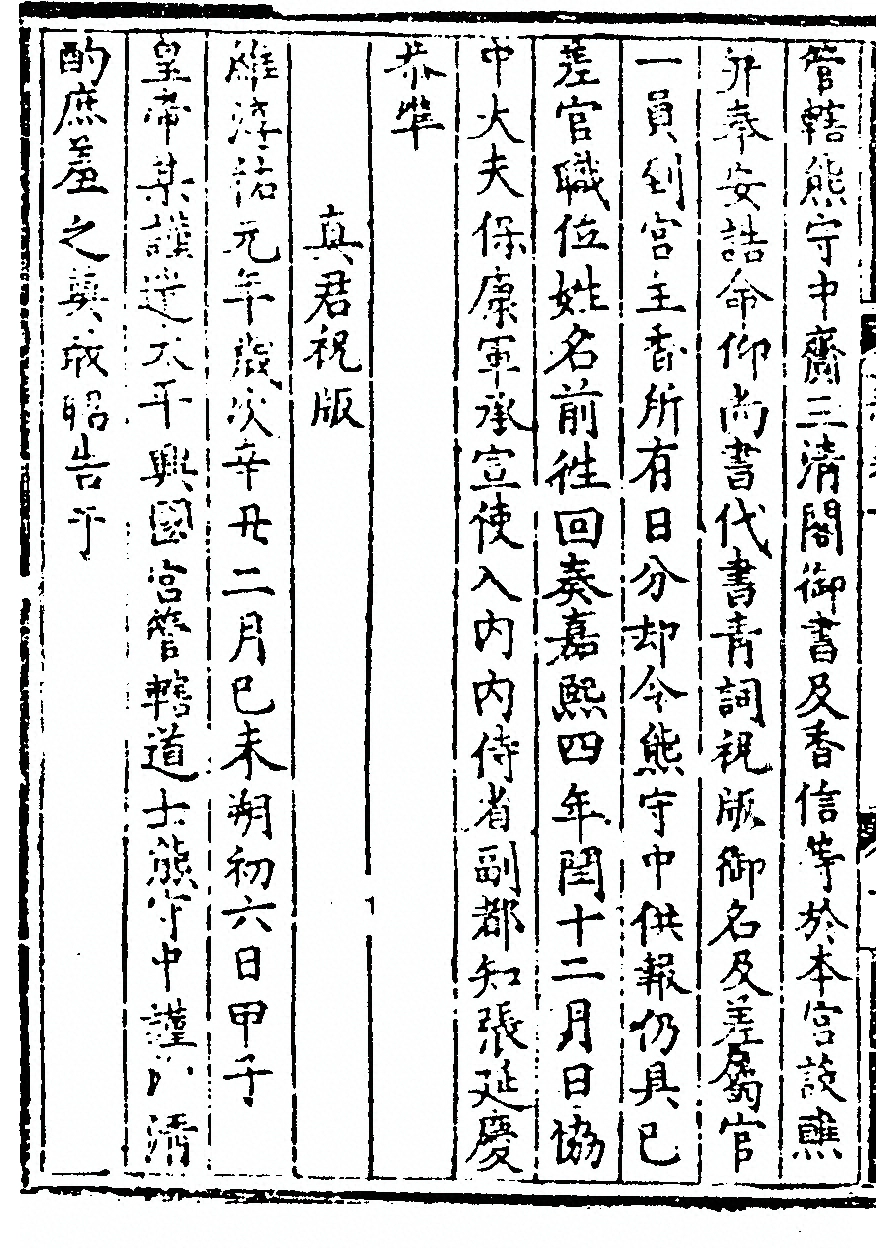 管轄熊守中齎三清閣御書及香信等於本宮設醮
并奉安誥命仰尚書代書青詞祝版御名及差屬官
一員到宮主香所有日分却令熊守中供報仍具已
差官職位姓名前徃回奏嘉熙四年閏十二月日協
中大夫保康軍承宣使入内内侍省副都知張延慶
恭準
真君祝版
維淳祐元年歲次辛丑二月已未朔初六日甲子
皇帝某謹遣太平興國宮管轄道士熊守中謹以清
酌庶羞之奠敢昭告于